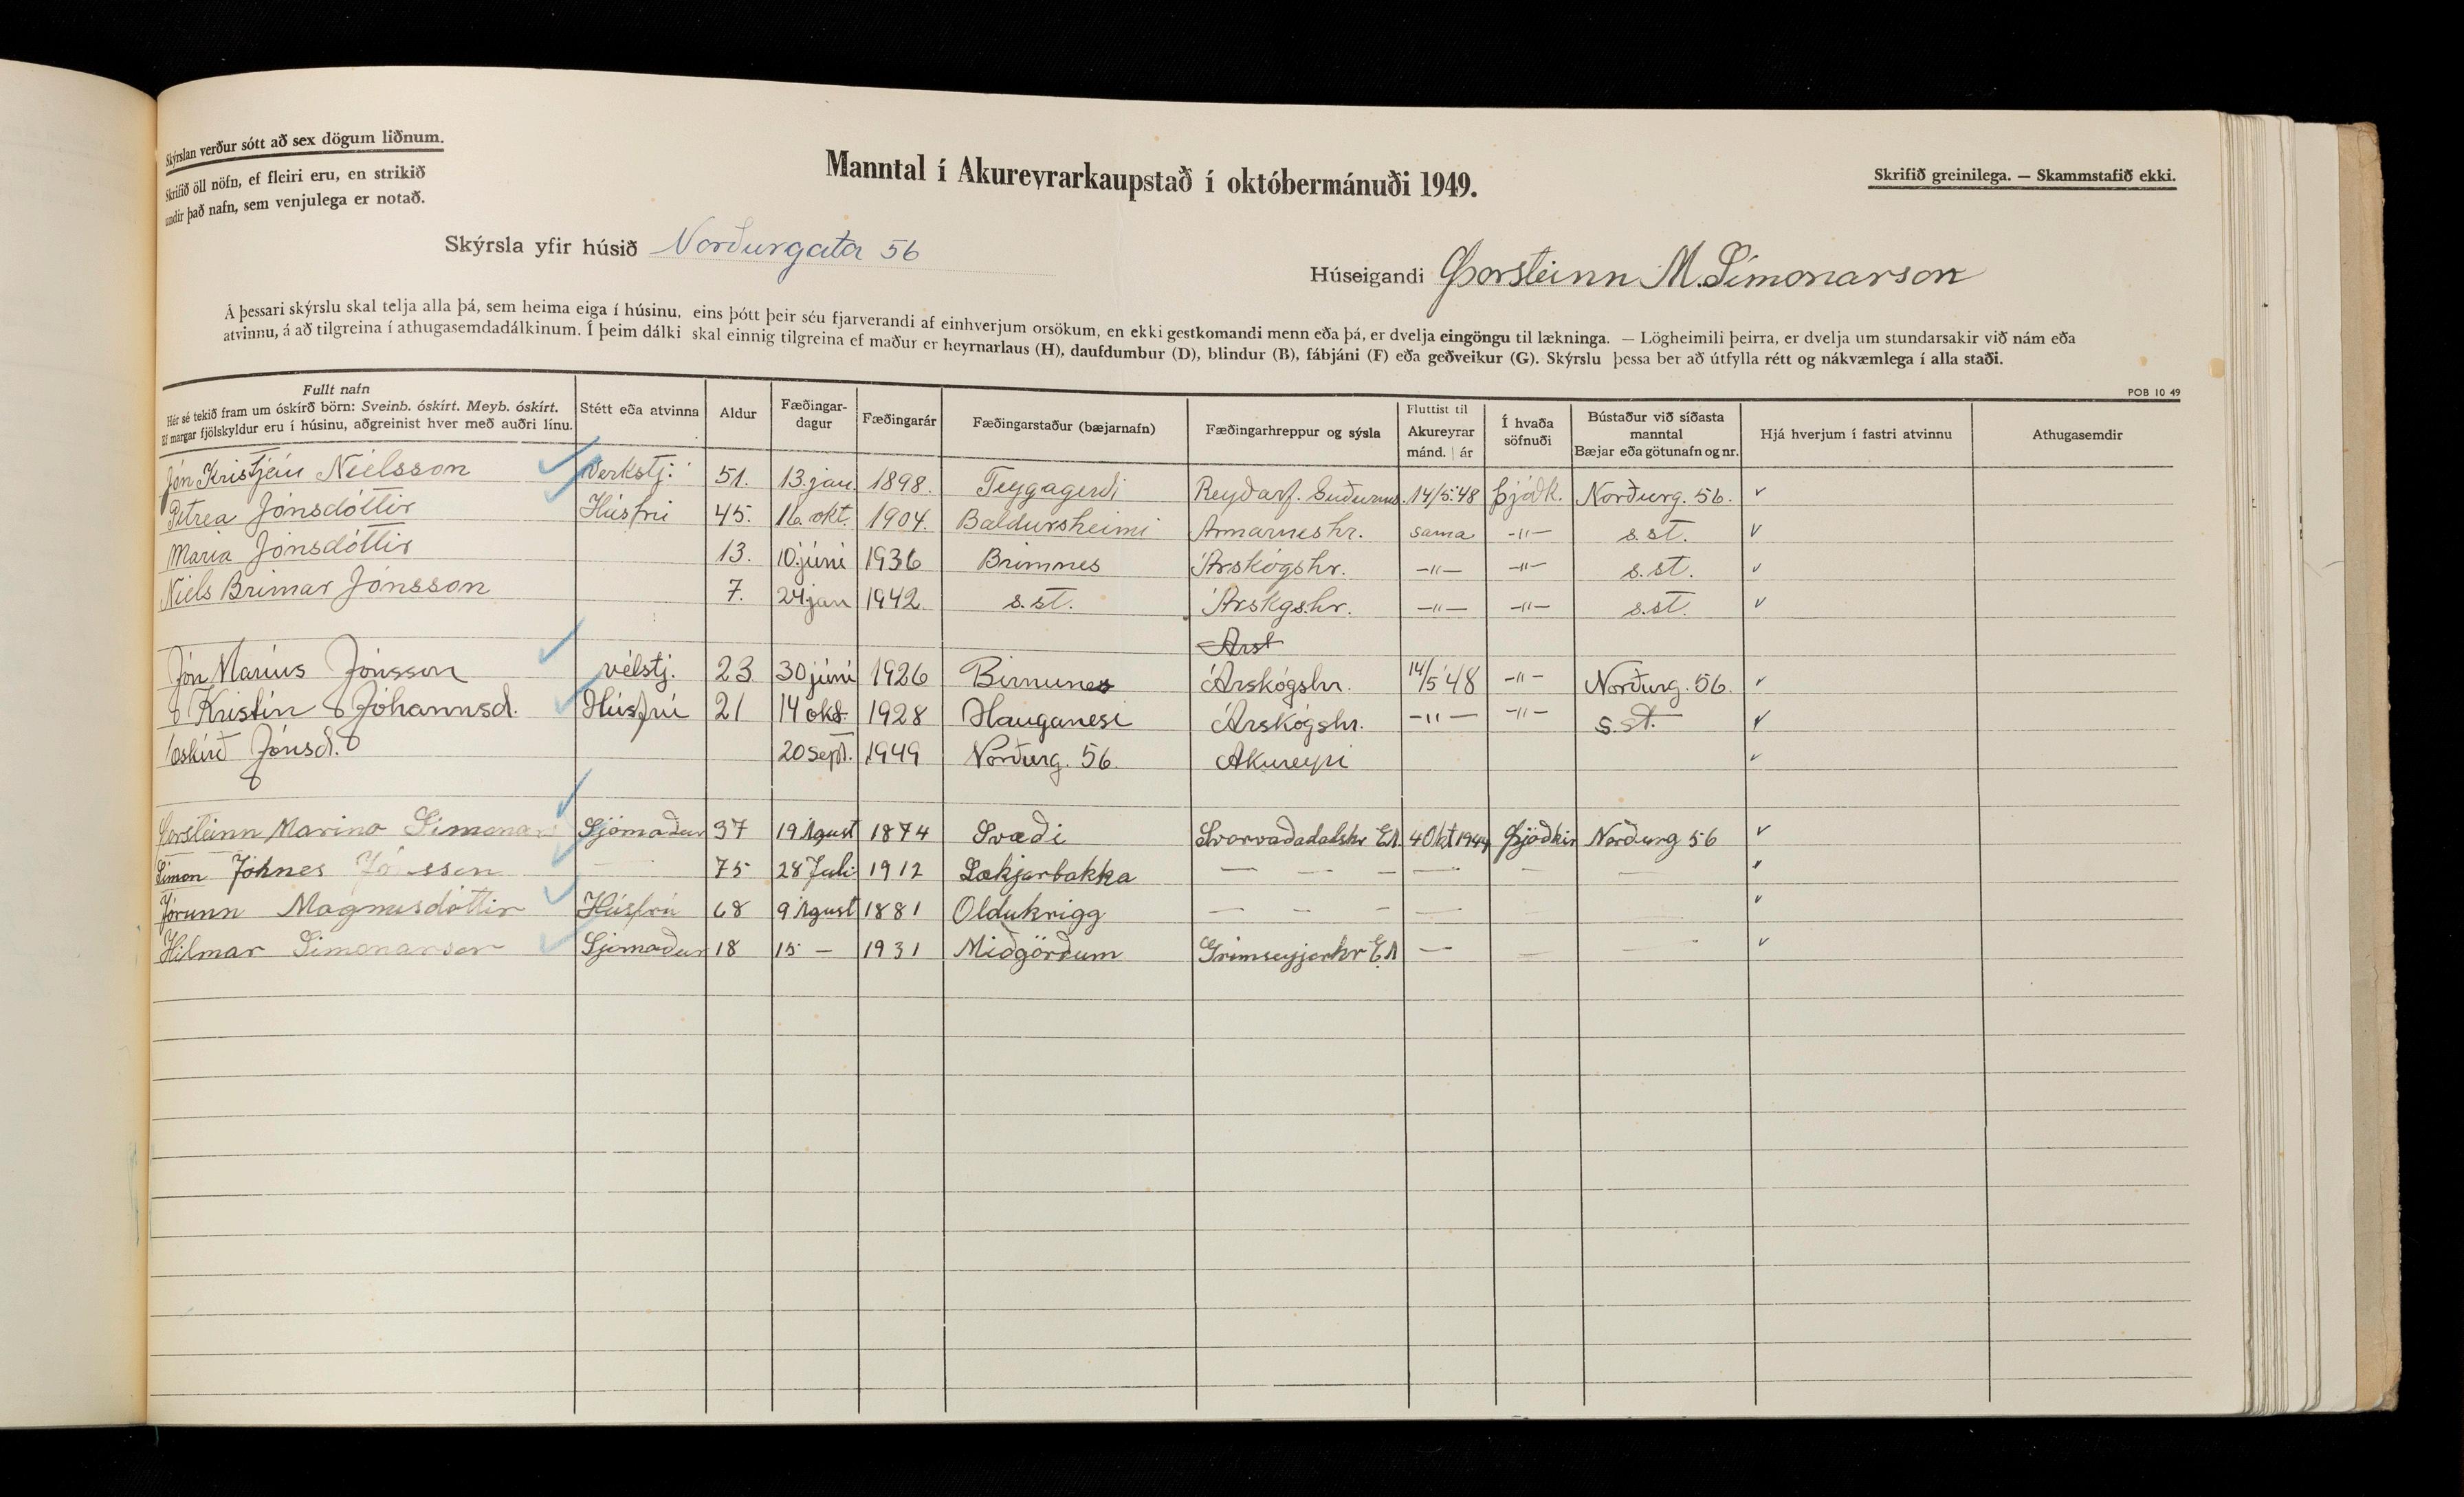 Skýrslan verður sótt að sex dögum liðnum.
Skrifið öll nöfn, ef fleiri eru, en strikið
undir það nafn, sem venjulega er notað.
Manntal í Akureyrarkaupstað í októbermánuði 1949.
Skrifið greinilega. — Skammstafið ekki.
Skýrsla yfir húsið Norðurgata 56
Húseigandi Þorsteinn M. Símonarson
Á þessari skýrslu skal telja alla þá, sem heima eiga í húsinu, eins þótt þeir séu fjarverandi af einhverjum orsökum, en ekki gestkomandi menn eða þá, er dvelja eingöngu til lækninga. — Lögheimili þeirra, er dvelja um stundarsakir við nám eða
atvinnu, á að tilgreina í athugasemdadálkinum. Í þeim dálki skal einnig tilgreina ef maður er heyrnarlaus (H), daufdumbur (D), blindur (B), fábjáni (F) eða geðveikur (G). Skýrslu þessa ber að útfylla rétt og nákvæmlega í alla staði.
POB 10 49
Fullt nafn
Hér sé tekið fram um óskírð börn: Sveinb. óskírt. Meyb. óskírt.
Ef margar fjölskyldur eru í húsinu, aðgreinist hver með auðri línu.
Stétt eða atvinna
Aldur
Fæðingar-
dagur
Fæðingarár
Fæðingarstaður (bæjarnafn)
Fæðingarhreppur og sýsla
Fluttist til
Akureyrar
mánd. | ár
Í hvaða
söfnuði
Bústaður við síðasta
manntal
Bæjar eða götunafn og nr.
Hjá hverjum í fastri atvinnu
Athugasemdir
Jón Kristján Níelsson Verkstj. 51. 13. jan. 1898. Teygagerði Reyðarf. Suðurms. 14/5.48 Þjóðk. Norðurg. 56. v
Petrea Jónsdóttir Húsfrú 45. 16. okt. 1904. Baldursheimi Arnarneshr. sama -"- s.st. v
María Jónsdóttir 13. 10. júní 1936 Brimnes Árskógshr. -"- -"- s.st. v
Níels Brimar Jónsson 7. 24 jan 1942. s.st. Árskgshr. -"- -"- s.st. v
Arsk
Jón Maríus Jónsson vélstj. 23 30 júní 1926 Birnunes Árskógshr. 14/5 '48 -"- Norðurg. 56. v
Kristín Jóhannsd. Húsfrú 21 14 okt. 1928 Hauganesi Árskógshr. -"- -"- s.st. v
óskírð Jónsd. 20 sept. 1949 Norðurg. 56. Akureyri v
Þorsteinn Marino Simonar Sjómaður 37 19 Ágúst 1874 Svæði Svarvaðadalshr E.s. 4 Okt 1944 Þjóðkir Norðurg 56 v
Símon Jóhnes Jónsson — 75 28 Juli 1912 Lækjarbakka — — — — — —
Jórunn Magnusdóttir Húsfrú 68 9 Ágúst 1881 Oldukrigg — — — — — — v
Hilmar Simonarson Sjómaður 18 15 — 1931 Miðgörðum Grimseyjarhr E.s — — — v